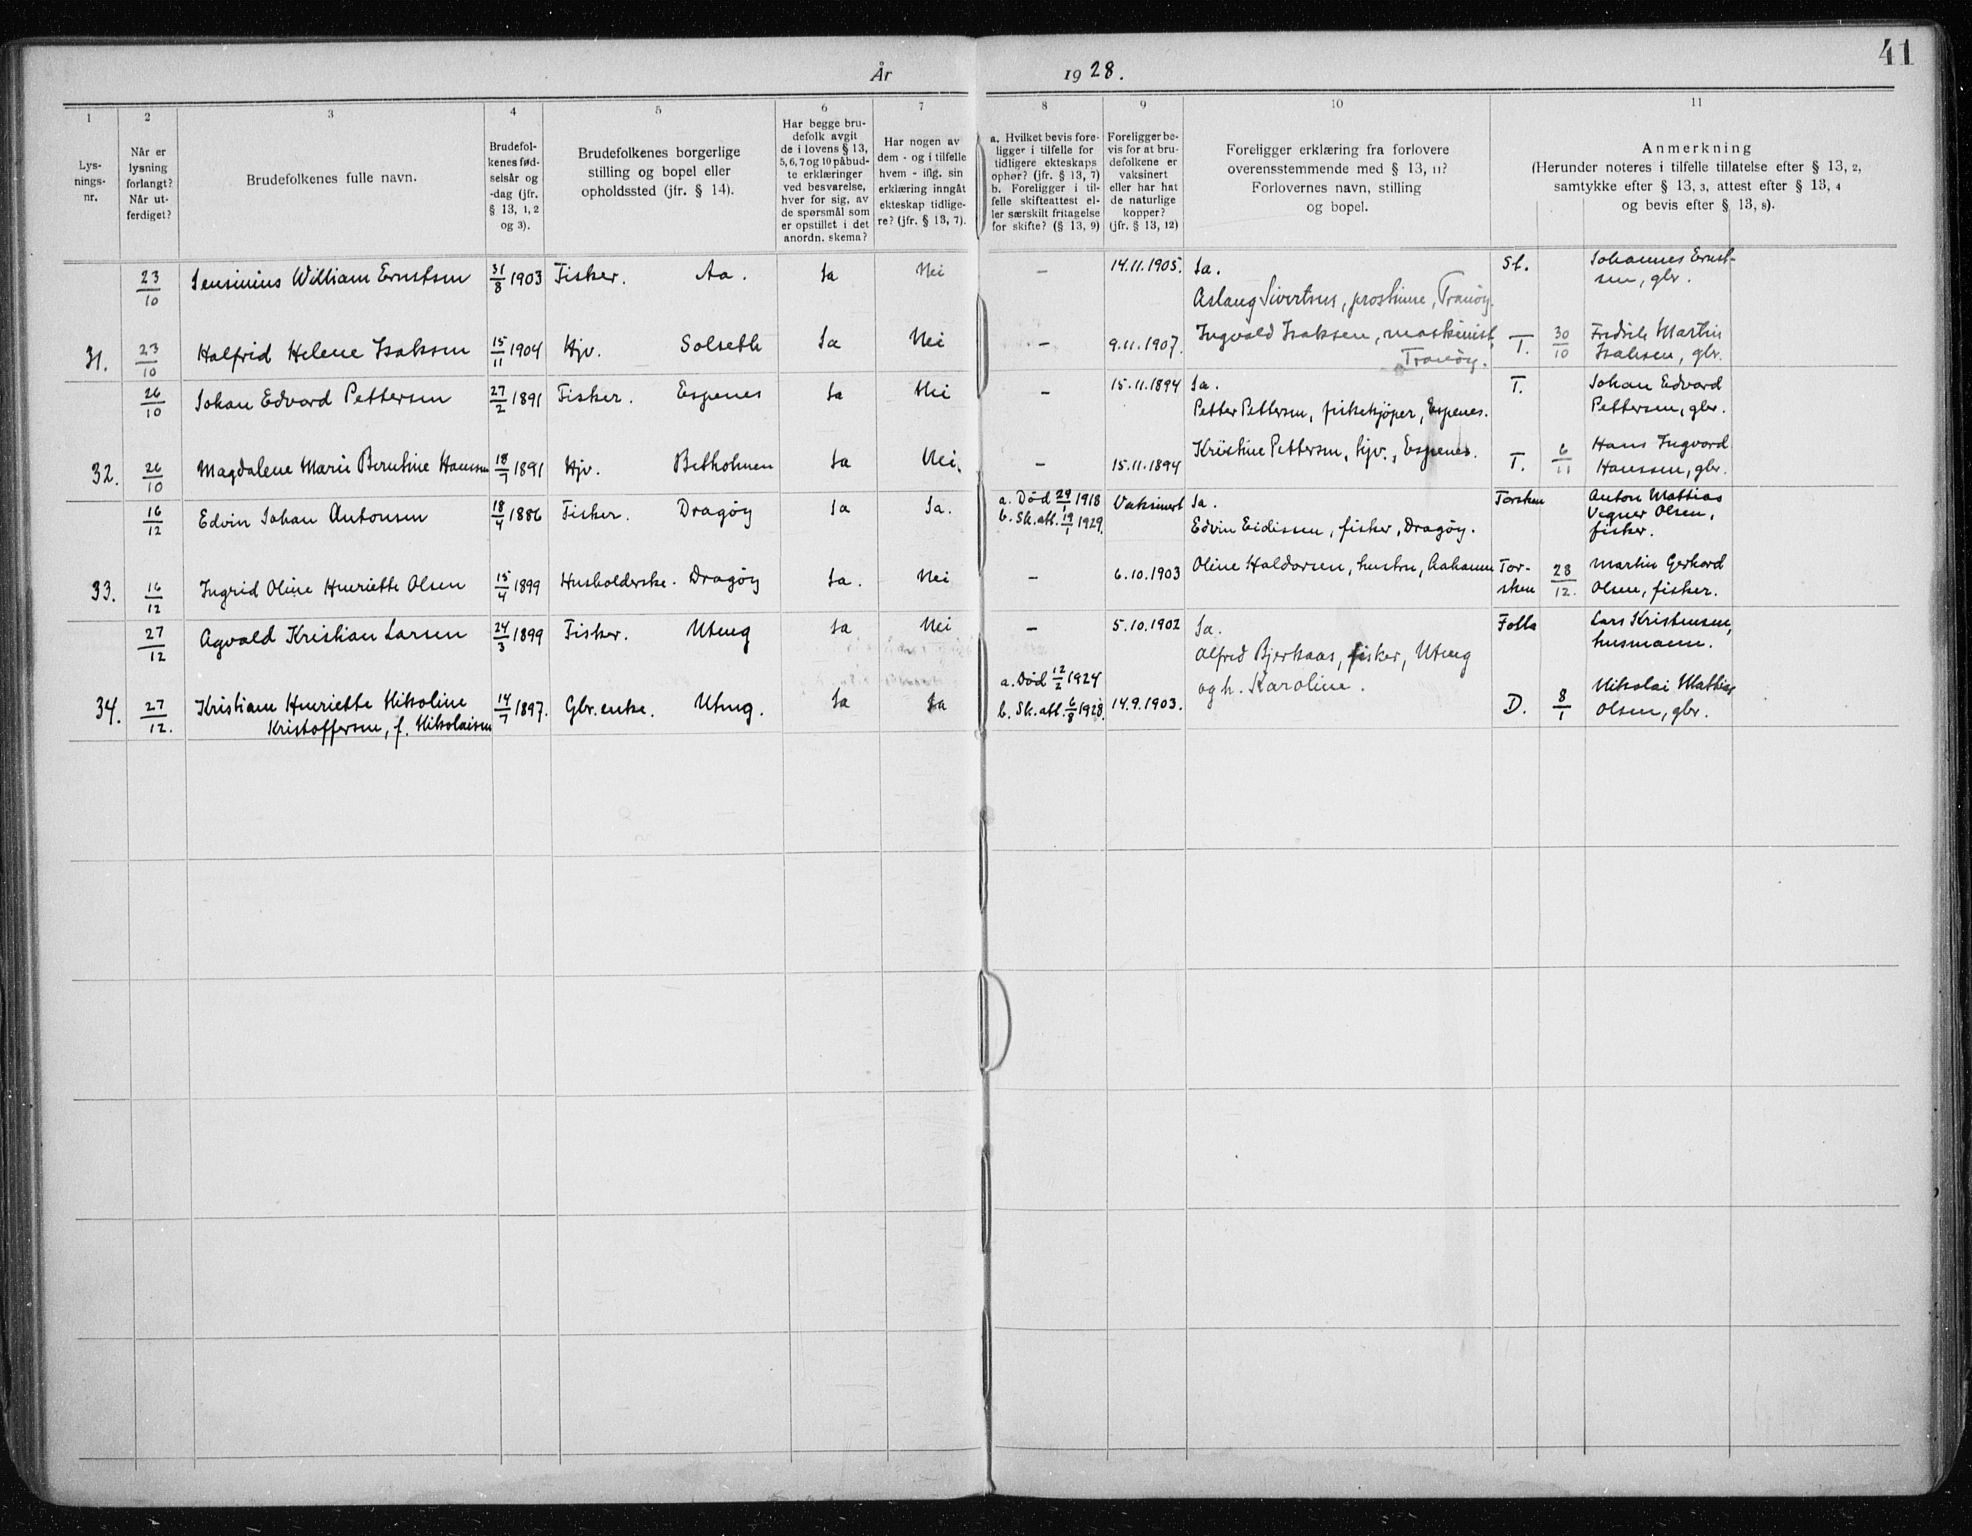 41
År 1928.
1 2 3 4 5 6 7 8 9 10 11
Lys-
nings-
nr.
Når er
lysning
forlangt?
Når ut-
ferdiget?
Brudefolkenes fulle navn.
Brudefol-
kenes fød-
selsår og
-dag (jfr.
§ 13, 1, 2
og 3).
Brudefolkenes borgerlige
stilling og bopel eller
opholdssted (jfr. § 14).
Har begge bru-
defolk avgit
de i lovens § 13,
5, 6, 7 og 10 påbud-
te erklæringer
ved besvarelse,
hver for sig, av
de spørsmål som
er opstillet i det
anordn. skema?
Har nogen av
dem - og i tilfelle
hvem - iflg. sin
erklæring inngåt
ekteskap tidlige-
re? (jfr. § 13, 7).
a. Hvilket bevis fore-
ligger i tilfelle for
tidligere ekteskaps
ophør? (jfr. § 13, 7)
b. Foreligger i til-
felle skifteattest el-
ler særskilt fritagelse
for skifte? (§ 13, 9)
Foreligger be-
vis for at bru-
defolkene er
vaksinert
eller har hat
de naturlige
kopper?
(jfr. § 13, 12)
Foreligger erklæring fra forlovere
overensstemmende med § 13, 11?
Forlovernes navn, stilling
og bopel.
Anmerkning
(Herunder noteres i tilfelle tillatelse efter § 13, 2,
samtykke efter § 13, 3, attest efter § 13, 4
og bevis efter § 13, 8).
23/10 Jensinius William Ernstsen 31/8 1903 Fisker. Aa. Ja Nei – 14.11.1905. Ja. St. Johannes Ernst-
sen, gbr.
Aslaug Sivertsen, prostinne, Tranøy.
31. 23/10 Halfrid Helene Isaksen 15/11 1904 Hjv. Solseth Ja Nei – 9.11.1907. Ingvald Isaksen, maskinist, T. 30/10 Fredrik Martin
Tranøy. Isaksen, gbr.
26/10 Johan Edvard Pettersen 27/2 1891 Fisker. Espenes Ja Nei – 15.11.1894 Ja. T. Johan Edvard
Petter Pettersen, fiskekjøper, Espenes. Pettersen, gbr.
32. 26/10 Magdalene Marie Berntine Hansen 18/7 1891 Hjv. Betholmen Ja Nei. – 15.11.1894 Kristine Pettersen, hjv., Espenes. T. 6/11 Hans Ingvard
Hanssen, gbr.
16/12 Edvin Johan Antonsen 18/4 1886 Fisker. Dragøy Ja Ja. a. Død 29/1 1918 Vaksinert Ja. Torsken Anton Mattias
b. Sk.att. 19/1 1929. Edvin Eidissen, fisker, Dragøy. Vegner Olsen,
fisker.
33. 16/12 Ingrid Oline Henriette Olsen 15/4 1899 Husholderske. Dragøy Ja. Nei – 6.10.1903 Oline Haldorsen, hustru, Aahamn Tor- 28/12. Martin Gerhard
sken Olsen, fisker.
27/12 Agvald Kristian Larsen 24/3 1899 Fisker. Uteng Ja Nei – 5.10.1902 Ja. Folla Lars Kristensen,
husmann.
Alfred Bjerkaas, fisker, Uteng
og h. Karoline.
34. 27/12. Kristiane Henriette Nikoline 14/7 1897. Gbr. enke. Uteng. Ja Ja a. Død 12/2 1924 14.9.1903. D. 8/1 Nikolai Mattias
Kristoffersen, f. Nikolaisen b. Sk.att. 6/8 1928. Olsen, gbr.